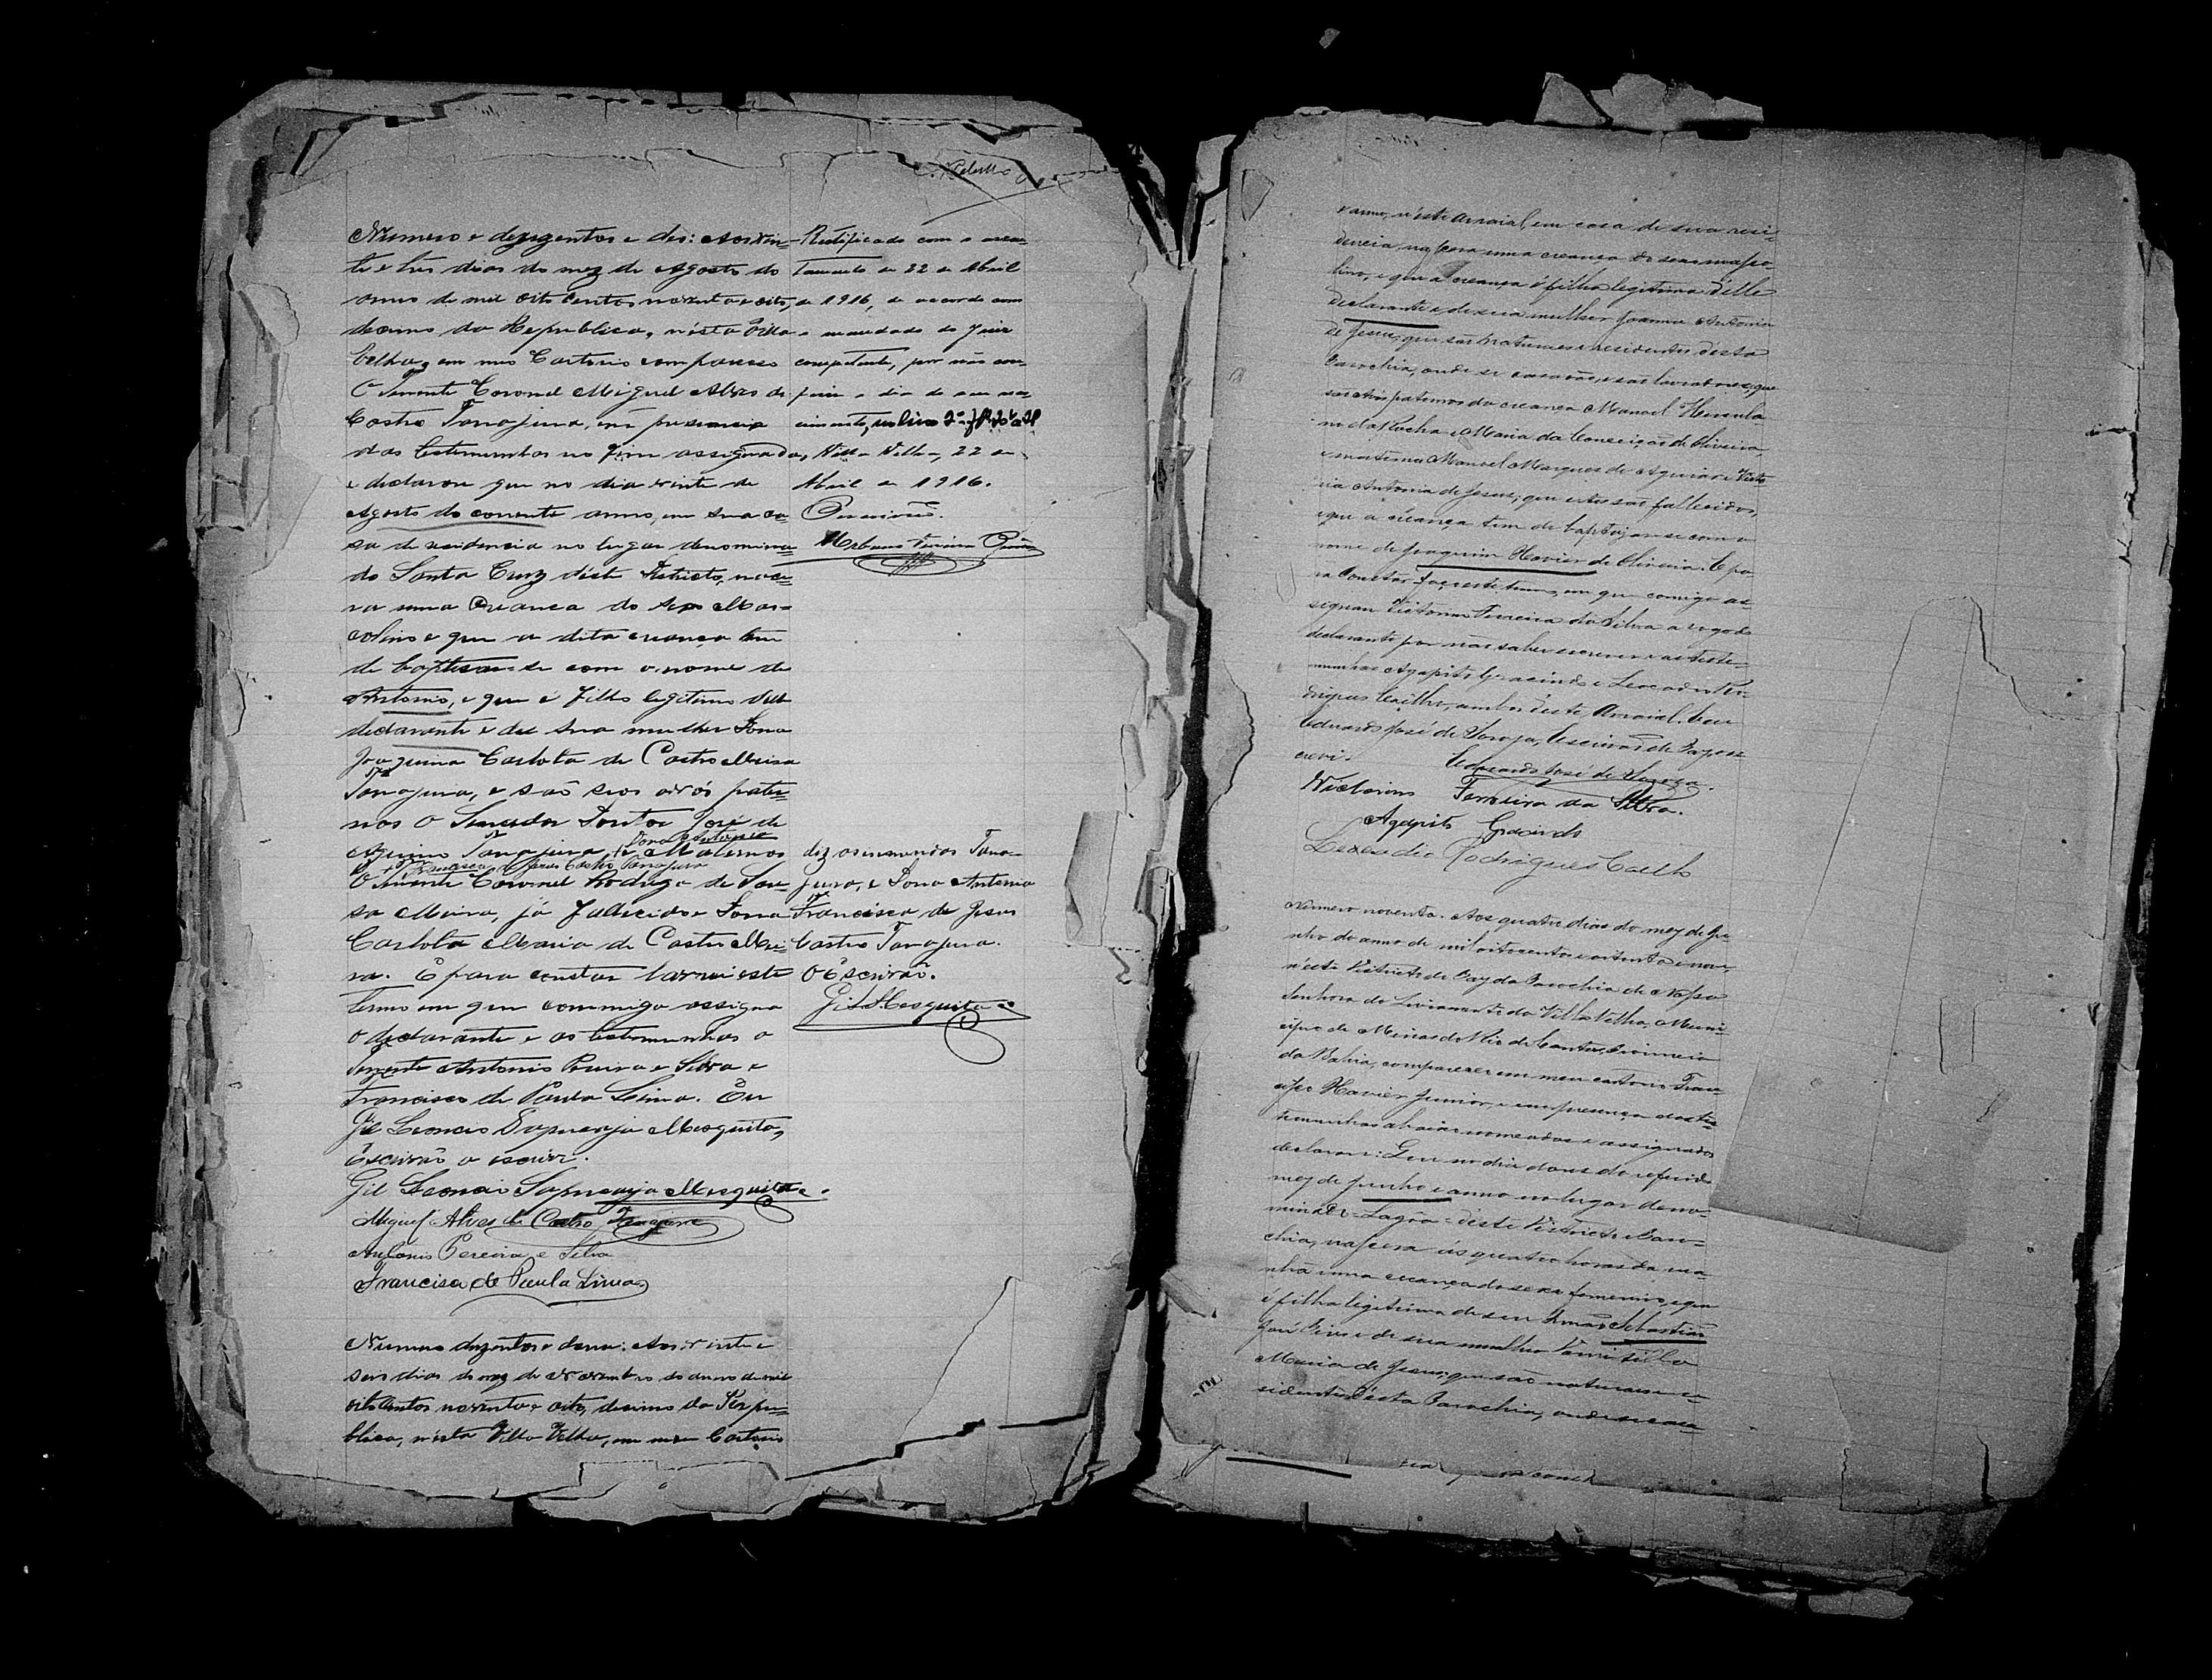 C. Rebello
Numero e dezgentos e dez: Aos vin-
te e tres dias do mez de Agosto do
anno de mil oito centos noventa e oito,
decimo da Republica, n'ésta Villa
Velha, em meu Cartorio compareceo
O Tenente Coronel Miguel Alves de
Castro Tanajura, em presencia
das testemunhas no fim assignadas,
e declarou que no dia vinte de
Agosto do corrente anno, em sua ca-
sa de residencia no lugar denomina-
do Santa Cruz d'éste Districto, nasce-
ra uma creança do sexo Mas-
colino e que a dita creança tem
de baptisar-se com o nome de
Antonio, e que é filho legitimo delle
declarante e de sua mulher Dona
Joaquina Carlota de Castro Meira
Tanajura, e são seos avós pater-
nos O Senador Doutor José de
Aquino Tanajura, e Dona Antonia
Francisca de Jesus Castro Tanajura
Maternos
O Tenente Coronel Rodrigo de Sou-
sa Meira, já fallecido e Dona
Carlota Maria de Castro Mei-
ra. E para constar lavrei este
termo em que commigo assigna
o declarante e as testemunhas o
Tenente Antonio Pereira e Silva e
Francisco de Paula Lima. Eu
Gil Leoncio Sapucaja Mesquita,
Escrivão o escrivi.
Gil Leoncio Sapucaja Mesquita.
Miguel Alves de Castro Tanajura
Antonio Pereira e Silva
Francisco de Paula Lima
Numero duzentos e onze: Aos vinte e
seis dias do mez de Novembro do anno de mil
oito centos noventa e oito, decimo da Repu-
blica, n'ésta Villa Velha, em meu Cartorio
Rectificado com o assen-
tamento de 22 de Abril
de 1916, de accordo com
o mandado do Juiz
competente, por não con-
ferir o dia do seu nas-
cimento, no livro 2º
Villa Velha, 22 de
Abril de 1916.
O escrivão.
Urbano
diz as emendas Tana-
jura, e Dona Antonia
Francisca de Jesus
Castro Tanajura.
O Escrivão.
Gil Mesquita
e anno, n'éste Arraial, em casa de sua resi-
dencia, nascera uma creança do sexo mascu-
lino, e que a creança é filha legitima d'elle
declarante e de sua mulher Joanna Antonia
de Jesus, que são naturaes e residentes d'esta
Parochia, onde se casarão, e são lavradores, que
são avós paternos da creança Manoel Hercula-
no da Rocha e Maria da Conceição de Oliveira,
e maternos Manoel Marques de Aguiar e Victo-
ria Antonia de Jesus, que estes são fallecidos,
e que a creança tem de baptizar-se com o
nome de Joaquim Xavier de Oliveira. E pa-
ra constar faço este termo, em que comigo as-
signam Victorino Ferreira da Silva a rogo do
declarante por não saber escrever e as teste-
munhas Agapito Gracindo e Leocadio Ro-
drigues Coelho, ambos d'este Arraial. Eu
Eduardo José de Souza, Escrivão de Paz o es-
crevi.
Eduardo José de Souza.
Victorino Ferreira da Silva.
Agapito Gracindo
Leocadio Rodrigues Coelho
Numero noventa. Aos quatro dias do mez de Ju-
nho do anno de mil oitocentos e oitenta e nove,
n'este Districto de Paz da Parochia de Nossa
Senhora do Livramento da Villa Velha, Muni-
cipio de Minas do Rio de Contas, Provincia
da Bahia, compareceu em meu cartorio Fran-
cisco Xavier Junior, e em presença das tes-
temunhas abaixo nomeadas e assignadas
declarou: Que no dia dous do referido
mez de Junho e anno no lugar deno-
minado = Lagôa = d'este Districto e Paro-
chia, nascera ás quatro horas da ma-
nhã uma creança do sexo femenino, e que
é filha legitima de seu irmão Sebastião
José Pires e de sua mulher
Maria de Jesus, que são naturaes e re-
sidentes d'ésta Parochia, onde se casa-